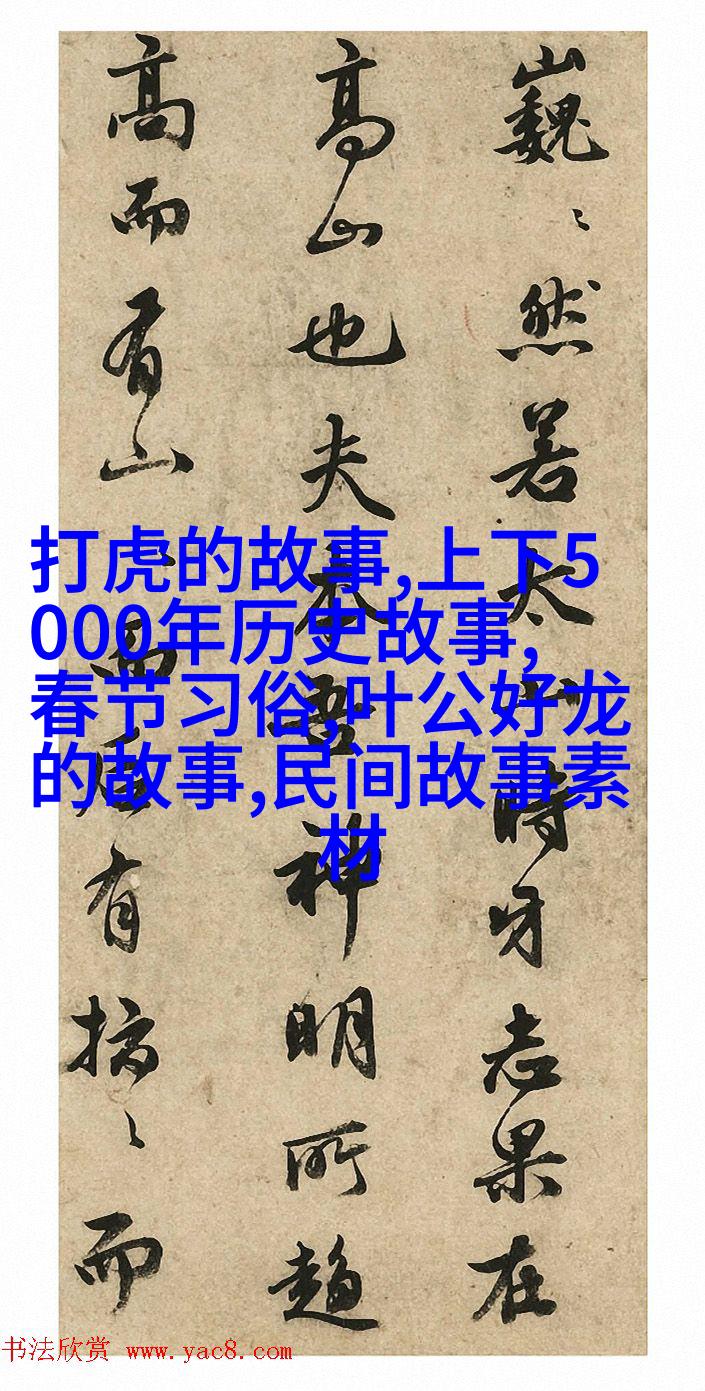 巍〻然若太山時牙志果在
高山也夫吾神明所趨
高而有山而有〻而
打虎的故事,上下5
000年历史故事,
春节习俗,叶公好龙
的故事,民间故事素
材
书法欣赏 www.yac8.com